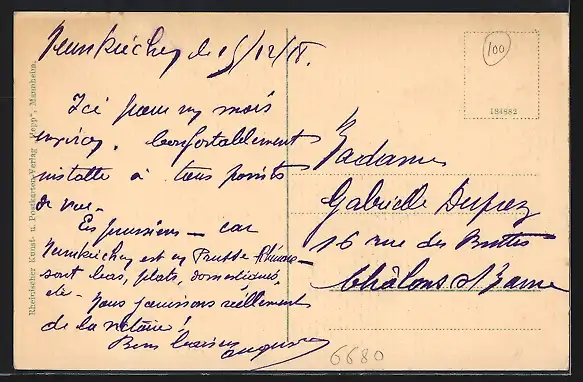 Neunkirchen le 15/12/18.
Ici pour un mois
environ. Confortablement
installé à tous points
de vue.
Les prussiens — car
Neunkirchen est en Prusse Rhénane —
sont bas, plats, domestiqués,
etc. Nous jouissons réellement
de la victoire!
Bons baisers
Auguste
Madame
Gabrielle Duprez
16 rue des Buttes
Châlons s/ Marne
184882
100
6680
Rheinischer Kunst- u. Postkarten-Verlag "Hepp", Mannheim.